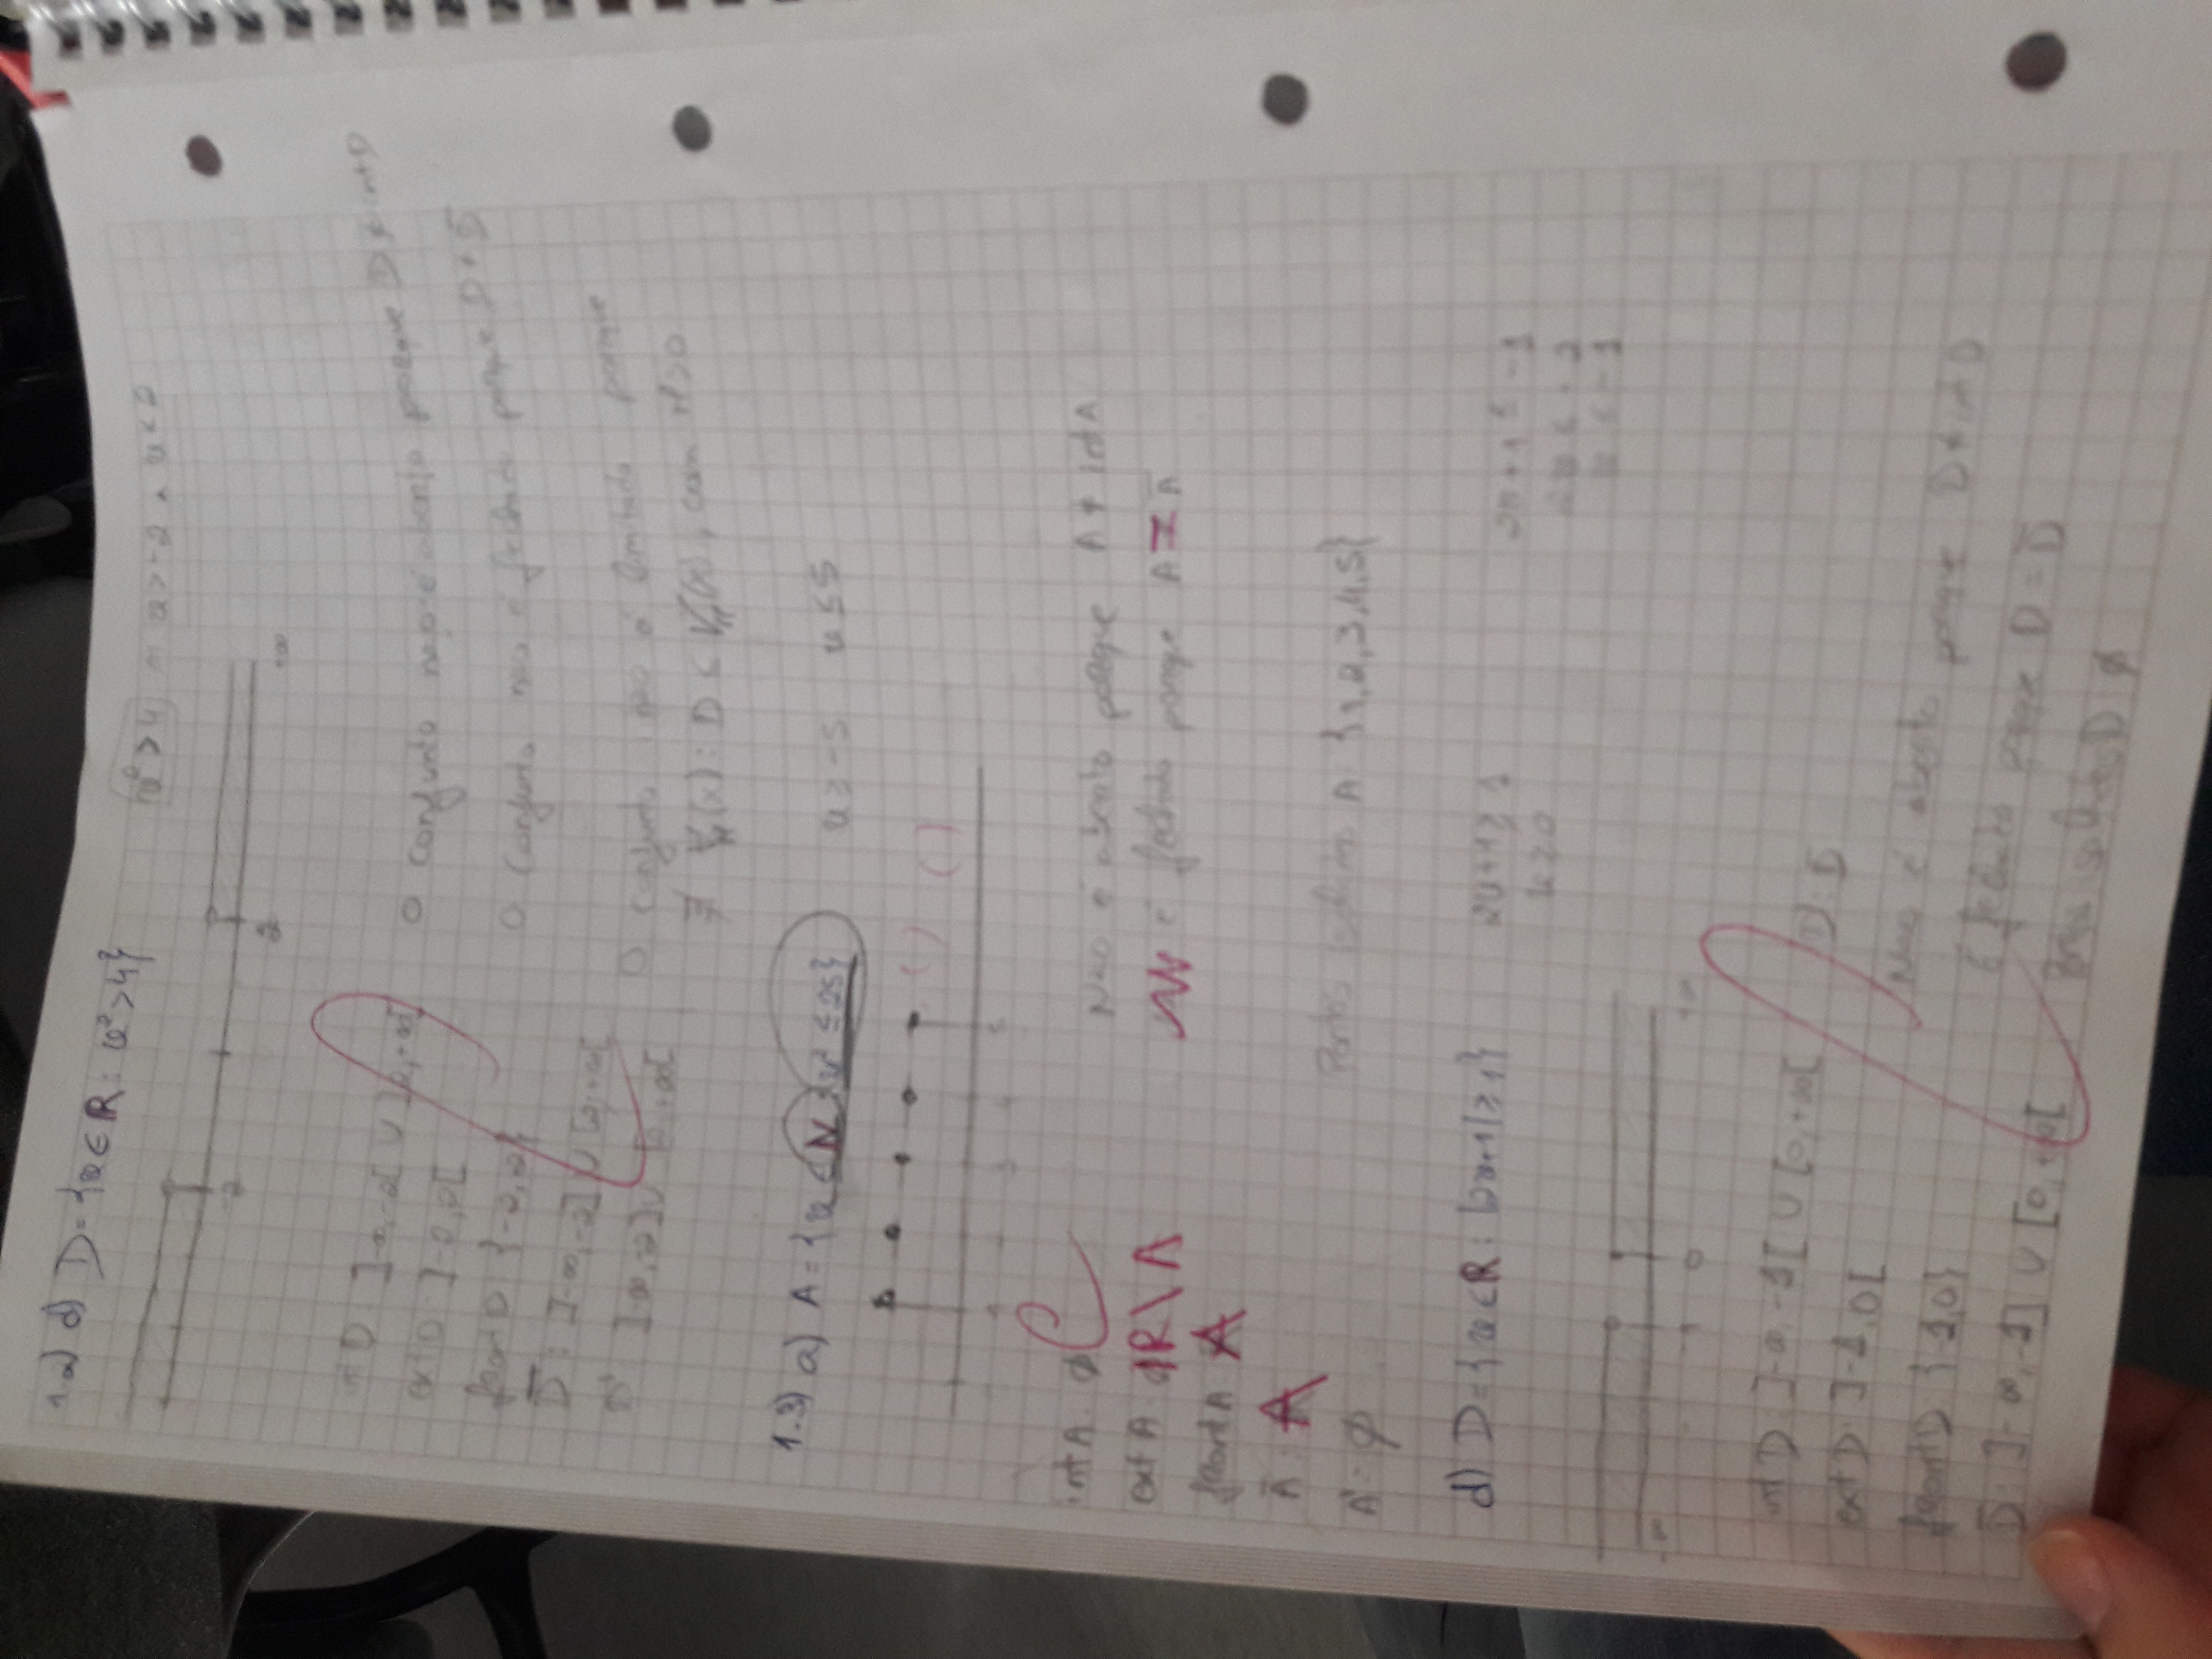 1.2) d) D = {x ∈ R : x² > 4}
x² > 4 = x > -2 ∧ x < 2
-2 2 +∞
int D : ]-∞, -2[ ∪ ]2, +∞[
ext D : ]-2, 2[
front D : {-2, 2}
D̅ : ]-∞, -2] ∪ [2, +∞[
D' : ]-∞, -2] ∪ [2, +∞[
O conjunto não é aberto porque D ≠ int D
O conjunto não é fechado porque D ≠ D̅
O conjunto não é limitado porque
∄ Vr(x) : D ⊂ Vr(x), com r > 0
1.3) a) A = {x ∈ N : x² ≤ 25}
x ≥ -5 x ≤ 5
( ) ( )
1 2 3 4 5
int A : ∅
ext A : R \ A
front A : A
A̅ : A
A' : ∅
Não é aberto porque A ≠ int A
é fechado porque A = A̅
Pontos isolados A : {1, 2, 3, 4, 5}
d) D = {x ∈ R : |2x+1| ≥ 1}
2x + 1 ≥ 1
x ≥ 0
2x + 1 ≤ -1
2x ≤ -2
x ≤ -1
-∞ -1 0 +∞
int D : ]-∞, -1[ ∪ [0, +∞[
ext D : ]-1, 0[
front D : {-1, 0}
D̅ : ]-∞, -1] ∪ [0, +∞[
D' : D̅
Não é aberto porque D ≠ int D
É fechado porque D = D̅
Pontos isolados D : ∅